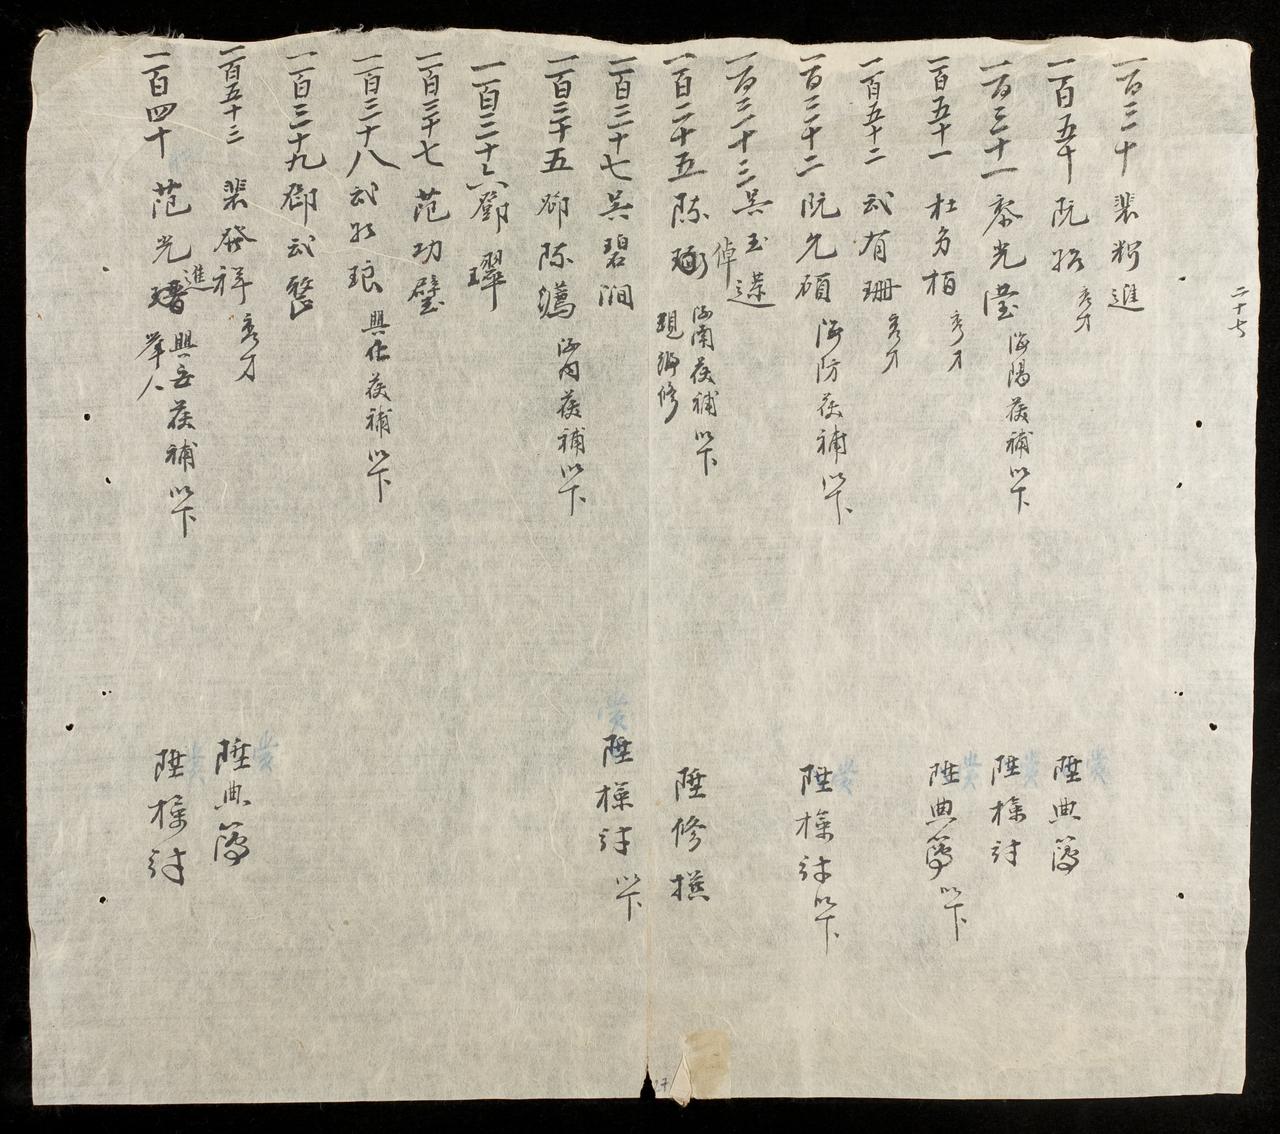 二十七
一百三十 裴 進
一百五十 阮 秀才 陞典簿
一百三十一 黎光瀅 海陽茯補以下 陞檢討
一百五十一 杜多栢 秀才 陞典簿以下
一百五十二 武有珊 秀才
一百三十二 阮允碩 海防茯補以下 陞檢討以下
一百三十三 吳玉
一百二十五 陈 海南茯補以下 現編修 陞修撰
一百二十七 吳碧澗 陞檢討以下
一百三十五 鄧陈 河内茯補以下
一百二十六 鄧璻
一百三十七 范功璧
一百三十八 武 琅 興化茯補以下
一百三十九 鄧武
一百五十三 裴發祥 秀才 陞典簿
一百四十 范光進 興安茯補以下 举人 陞檢討